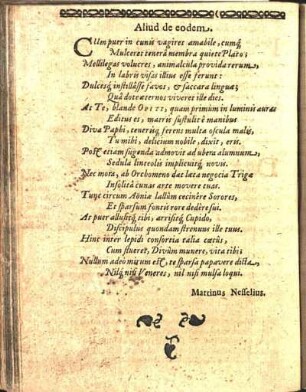 Aliud de eodem.
CUm puer in cunis vagiret amabile, cumq́
Mulceret tenerâ membra quiete Plato;
Mellilegas volucres, animalcula provida rerum,
In labris visas illius esse ferunt:
Dulcesq́ instillâsse favos, & saccara linguæ;
Quâ dote æternos viveret ille dies.
At Te, blande OPITI, quam primùm in luminis auras
Editus es, matris sustulit è manibus
Diva Paphi, tenerisq́ ferens multa oscula malis,
Tu mihi, delicium nobile, dixit, eris.
Post etiam sugenda admovit ad ubera alumnum,
Sedula linteolis implicuitq́ novis.
Nec mora, ab Orchomeno das læta negotia Trigæ
Insolitâ cunas arte movere tuas.
Tunc circum Aonia lallum cecinêre Sorores,
Et sparsum fontis rore dedêre sui.
At puer allusitq́ tibi, arrisitq́ Cupido,
Discipulus quondam strenuus ille tuus.
Hinc inter lepidi consortia talia cœtûs,
Cum stueret, Divûm munere, vita tibi;
Nullum adeò mirum est, te sparsa papavere dicta,
Nilq́ nisi Veneres, nil nisi mulsa loqui.
Martinus Nesselius.